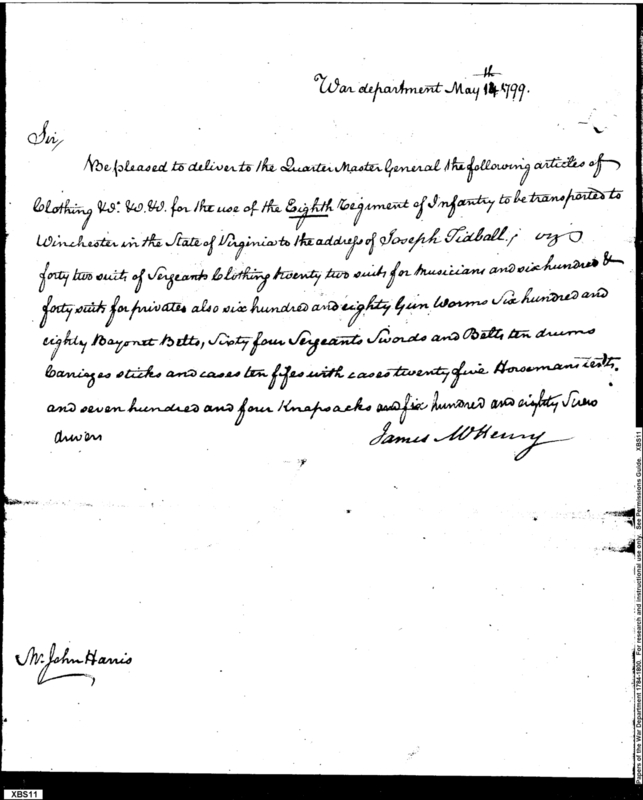 War department May 14th 1799.
Sir,
Be pleased to deliver to the Quarter Master General the following articles of
Clothing &c. &c. &c. for the use of the Eighth Regiment of Infantry to be transported to
Winchester in the State of Virginia to the address of Joseph Tidball, viz
forty two suits of Sergeants Clothing twenty two suits for Musicians and six hundred &
forty suits for privates also six hundred and eighty Gun Worms Six hundred and
eighty Bayonet Belts, Sixty four Sergeants Swords and Belts ten drums
Carriages sticks and cases ten fifes with cases twenty five Horsemans tents.
and seven hundred and four Knapsacks and six hundred and eighty Screw
drivers
James McHenry
Mr. John Harris
XBS11
Papers of the War Department 1784-1800. For research and instructional use only. See Permissions Guide. XBS11